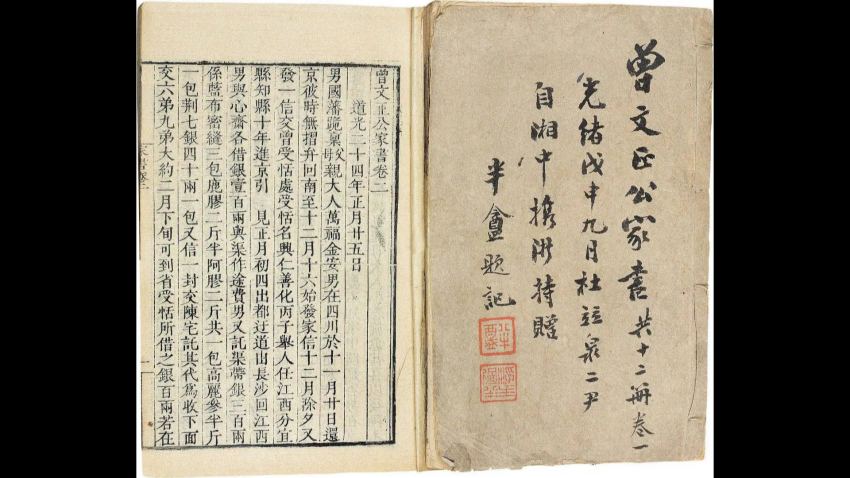 曾文正公家書共十二冊卷一
光緒戊申九月杜竝泉二尹
自湘中携浙持贈
半盦題記
曾文正公家書卷二
道光二十四年正月廿五日
男國藩跪稟父母親大人萬福金安男在四川於十一月廿日還
京彼時無摺弁回南至十二月十六始發家信十二月除夕又
發一信交曾受恬處受恬名興仁善化丙子舉人任江西分宜
縣知縣十年進京引　見正月初四出都迂道出長沙回江西
男與心齋各借銀壹百兩與渠作途費男又託渠帶銀三百兩
係藍布密縫三包鹿膠二斤半阿膠二斤共一包高麗參半斤
一包荆七銀四十兩一包又信一封交陳宅託其代爲收下面
交六弟九弟大約二月下旬可到省受恬所借之銀百兩若在